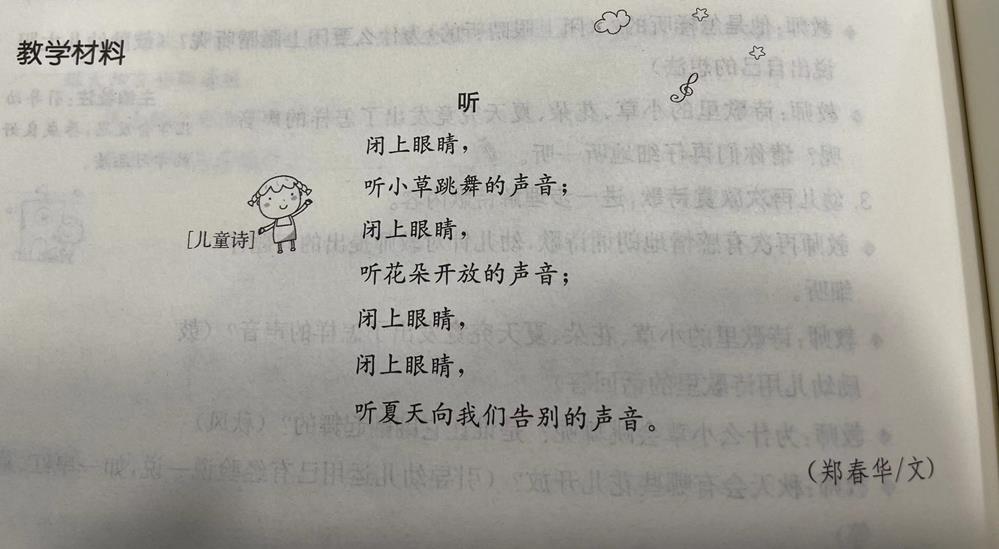 教学材料
听
闭上眼睛，
听小草跳舞的声音；
[儿童诗]
闭上眼睛，
听花朵开放的声音；
闭上眼睛，
闭上眼睛，
听夏天向我们告别的声音。
（郑春华/文）